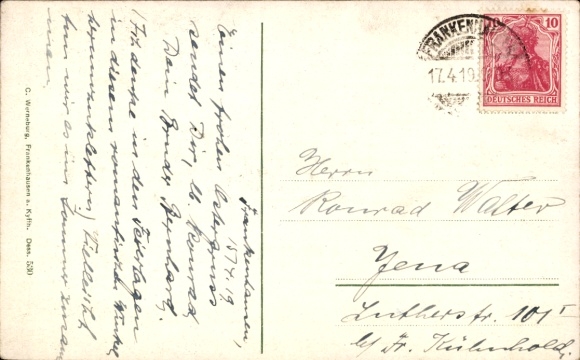 Frankenhausen,
15.4.19
Einen frohen Ostergruss
sendet Dir, lb. Konrad
Dein Bruder Bernhard.
(Ich denke in den Feiertagen
in diesem romantischen Winkel
herumzuklettern.) Vielleicht
tun wir es im Sommer zusam-
men.
C. Werneburg, Frankenhausen a. Kyffh. Dess. 530
FRANKENHAUSEN
17.4.19.
10
DEUTSCHES REICH
Herrn
Konrad Walter
Jena
Lutherstr. 101 I
b/ Fr. Kühnhold